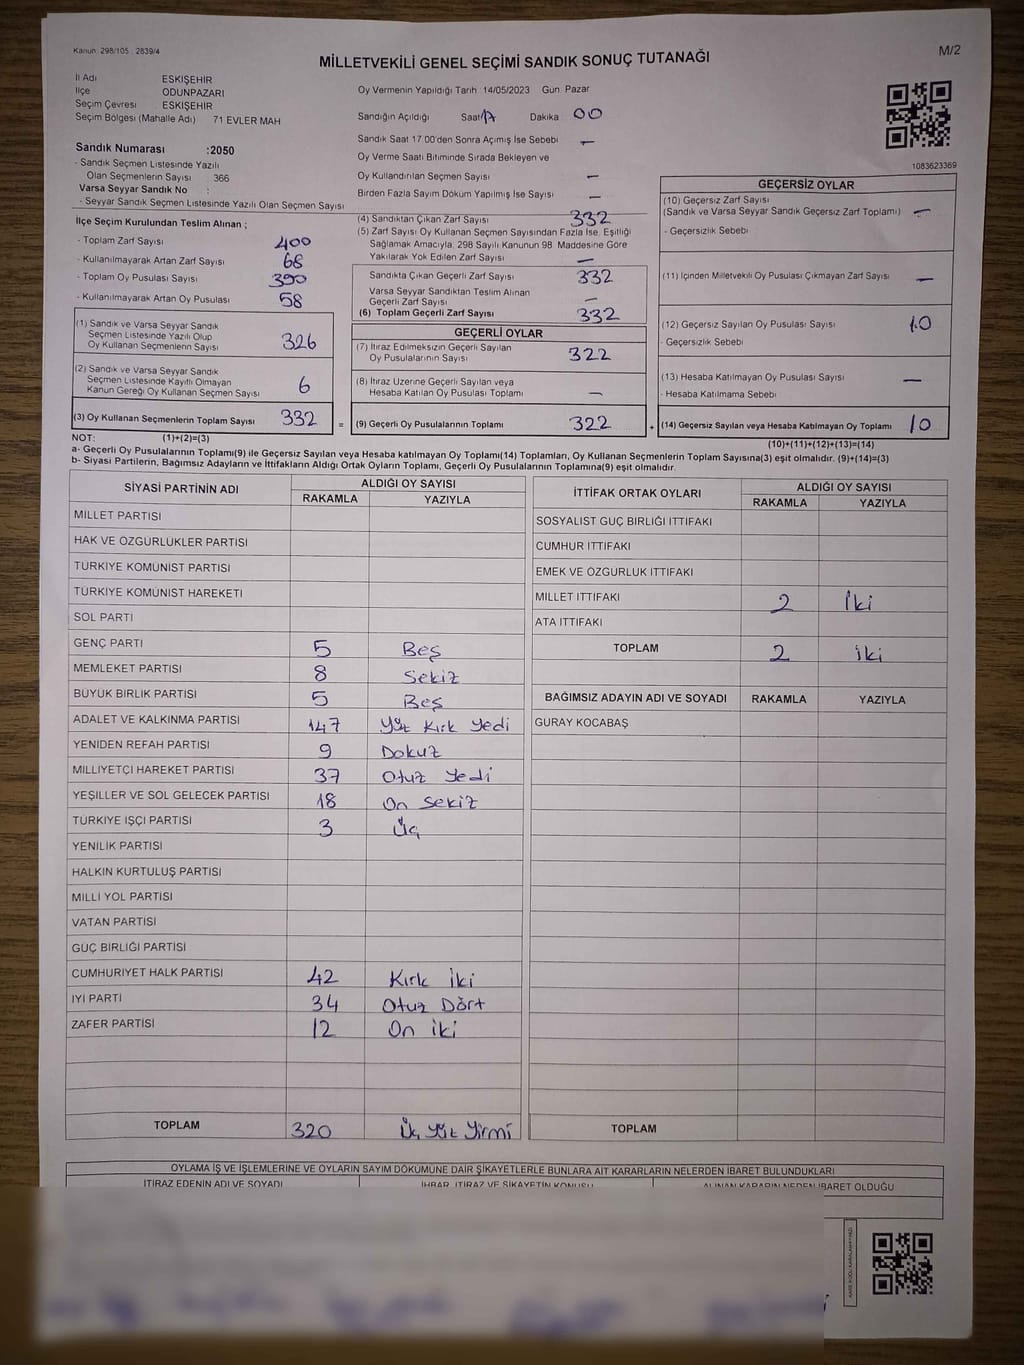 Kanun: 298/105 : 2839/4
M/2
MİLLETVEKİLİ GENEL SEÇİMİ SANDIK SONUÇ TUTANAĞI
İl Adı ESKİŞEHİR
İlçe ODUNPAZARI
Seçim Çevresi ESKİŞEHİR
Seçim Bölgesi (Mahalle Adı) 71 EVLER MAH
Sandık Numarası :2050
- Sandık Seçmen Listesinde Yazılı
Olan Seçmenlerin Sayısı 366
Varsa Seyyar Sandık No :
- Seyyar Sandık Seçmen Listesinde Yazılı Olan Seçmen Sayısı
İlçe Seçim Kurulundan Teslim Alınan ;
- Toplam Zarf Sayısı 400
- Kullanılmayarak Artan Zarf Sayısı 68
- Toplam Oy Pusulası Sayısı 390
- Kullanılmayarak Artan Oy Pusulası 58
(1) Sandık ve Varsa Seyyar Sandık
Seçmen Listesinde Yazılı Olup
Oy Kullanan Seçmenlerin Sayısı 326
(2) Sandık ve Varsa Seyyar Sandık
Seçmen Listesinde Kayıtlı Olmayan
Kanun Gereği Oy Kullanan Seçmen Sayısı 6
(3) Oy Kullanan Seçmenlerin Toplam Sayısı 332 =
Oy Vermenin Yapıldığı Tarih 14/05/2023 Gün Pazar
Sandığın Açıldığı Saat 17 Dakika 00
Sandık Saat 17:00'den Sonra Açımış İse Sebebi —
Oy Verme Saati Bitiminde Sırada Bekleyen ve
Oy Kullandırılan Seçmen Sayısı —
Birden Fazla Sayım Döküm Yapılmış İse Sayısı —
(4) Sandıktan Çıkan Zarf Sayısı 332
(5) Zarf Sayısı Oy Kullanan Seçmen Sayısından Fazla İse, Eşitliği
Sağlamak Amacıyla, 298 Sayılı Kanunun 98 Maddesine Göre
Yakılarak Yok Edilen Zarf Sayısı —
Sandıkta Çıkan Geçerli Zarf Sayısı 332
Varsa Seyyar Sandıktan Teslim Alınan
Geçerli Zarf Sayısı —
(6) Toplam Geçerli Zarf Sayısı 332
GEÇERLİ OYLAR
(7) İtiraz Edilmeksizin Geçerli Sayılan
Oy Pusulalarının Sayısı 322
(8) İtiraz Üzerine Geçerli Sayılan veya
Hesaba Katılan Oy Pusulası Toplamı —
(9) Geçerli Oy Pusulalarının Toplamı 322 +
1083623369
GEÇERSİZ OYLAR
(10) Geçersiz Zarf Sayısı
(Sandık ve Varsa Seyyar Sandık Geçersiz Zarf Toplamı) —
- Geçersizlik Sebebi
(11) İçinden Milletvekili Oy Pusulası Çıkmayan Zarf Sayısı —
(12) Geçersiz Sayılan Oy Pusulası Sayısı 10
- Geçersizlik Sebebi
(13) Hesaba Katılmayan Oy Pusulası Sayısı —
- Hesaba Katılmama Sebebi
(14) Geçersiz Sayılan veya Hesaba Katılmayan Oy Toplamı 10
NOT: (1)+(2)=(3) (10)+(11)+(12)+(13)=(14)
a- Geçerli Oy Pusulalarının Toplamı(9) ile Geçersiz Sayılan veya Hesaba katılmayan Oy Toplamı(14) Toplamları, Oy Kullanan Seçmenlerin Toplam Sayısına(3) eşit olmalıdır. (9)+(14)=(3)
b- Siyasi Partilerin, Bağımsız Adayların ve İttifakların Aldığı Ortak Oyların Toplamı, Geçerli Oy Pusulalarının Toplamına(9) eşit olmalıdır.
SİYASİ PARTİNİN ADI ALDIĞI OY SAYISI
RAKAMLA YAZIYLA
MİLLET PARTİSİ
HAK VE ÖZGÜRLÜKLER PARTİSİ
TÜRKİYE KOMÜNİST PARTİSİ
TÜRKİYE KOMÜNİST HAREKETİ
SOL PARTİ
GENÇ PARTİ 5 Beş
MEMLEKET PARTİSİ 8 Sekiz
BÜYÜK BİRLİK PARTİSİ 5 Beş
ADALET VE KALKINMA PARTİSİ 147 Yüz Kırk Yedi
YENİDEN REFAH PARTİSİ 9 Dokuz
MİLLİYETÇİ HAREKET PARTİSİ 37 Otuz Yedi
YEŞİLLER VE SOL GELECEK PARTİSİ 18 On Sekiz
TÜRKİYE İŞÇİ PARTİSİ 3 Üç
YENİLİK PARTİSİ
HALKIN KURTULUŞ PARTİSİ
MİLLİ YOL PARTİSİ
VATAN PARTİSİ
GÜÇ BİRLİĞİ PARTİSİ
CUMHURİYET HALK PARTİSİ 42 Kırk İki
İYİ PARTİ 34 Otuz Dört
ZAFER PARTİSİ 12 On iki
TOPLAM 320 Üç Yüz Yirmi
İTTİFAK ORTAK OYLARI ALDIĞI OY SAYISI
RAKAMLA YAZIYLA
SOSYALİST GÜÇ BİRLİĞİ İTTİFAKI
CUMHUR İTTİFAKI
EMEK VE ÖZGÜRLÜK İTTİFAKI
MİLLET İTTİFAKI 2 İki
ATA İTTİFAKI
TOPLAM 2 iki
BAĞIMSIZ ADAYIN ADI VE SOYADI RAKAMLA YAZIYLA
GÜRAY KOCABAŞ
TOPLAM
OYLAMA İŞ VE İŞLEMLERİNE VE OYLARIN SAYIM DÖKÜMÜNE DAİR ŞİKAYETLERLE BUNLARA AİT KARARLARIN NELERDEN İBARET BULUNDUKLARI
İTİRAZ EDENİN ADI VE SOYADI İHBAR, İTİRAZ VE ŞİKAYETİN KONUSU ALINAN KARARIN NEDEN İBARET OLDUĞU